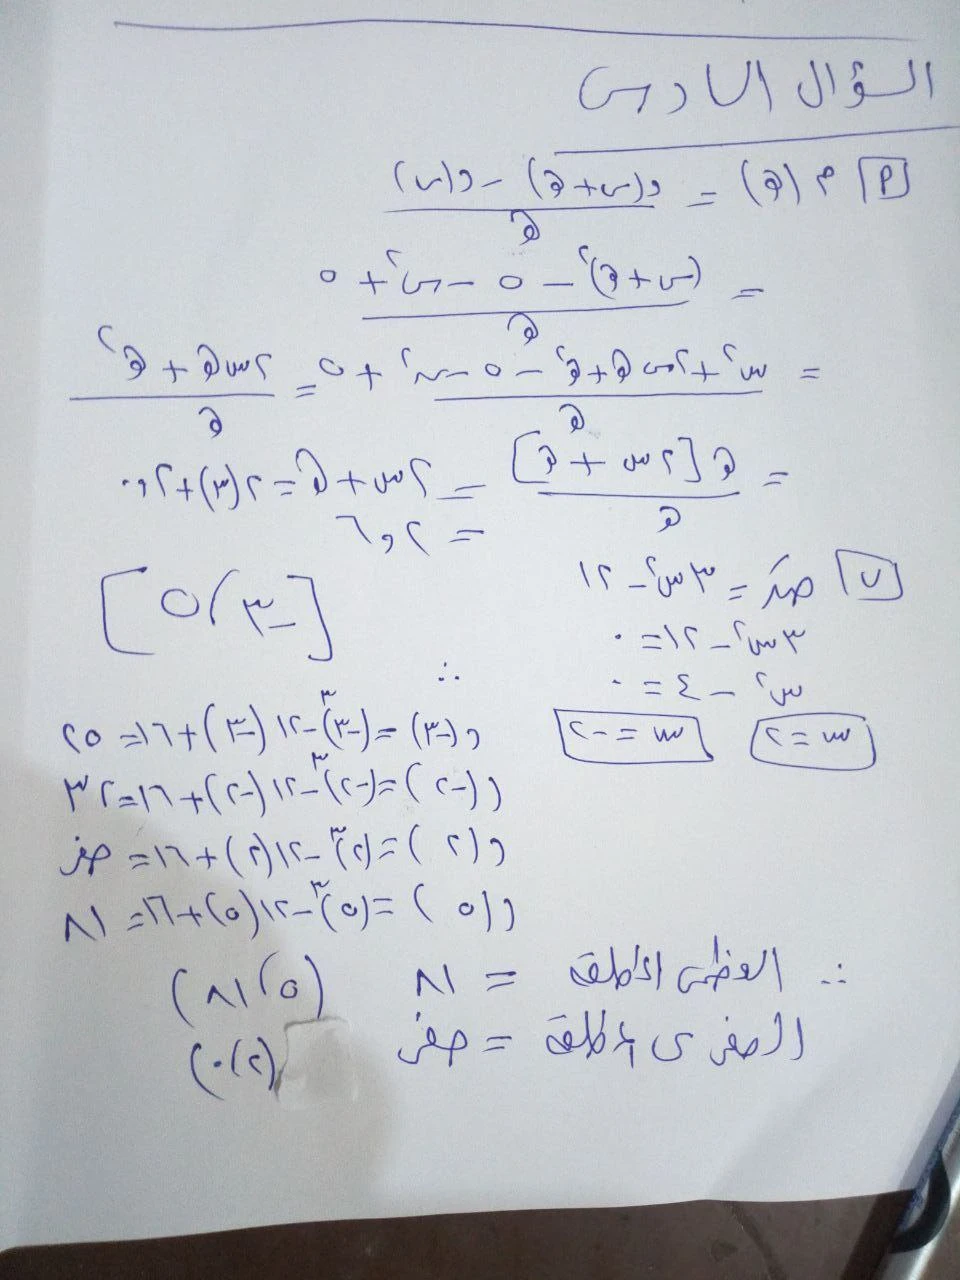 السؤال السادس
[أ] م(هـ) = (د(س+هـ) - د(س))/هـ
= ((س+هـ)٢ - ٥ - س٢ + ٥)/هـ
= (س٢ + ٢س هـ + هـ٢ - ٥ - س٢ + ٥)/هـ = (٢س هـ + هـ٢)/هـ
= هـ[٢س + هـ]/هـ = ٢س + هـ = ٢(٣) + ٢و٠
= ٢و٦
[ب] صَ = ٣س٢ - ١٢
[-٣، ٥]
٣س٢ - ١٢ = ٠
س٢ - ٤ = ٠
∴
س = ٢ س = -٢
د(-٣) = (-٣)٣ - ١٢(-٣) + ١٦ = ٢٥
د(-٢) = (-٢)٣ - ١٢(-٢) + ١٦ = ٣٢
د(٢) = (٢)٣ - ١٢(٢) + ١٦ = صفر
د(٥) = (٥)٣ - ١٢(٥) + ١٦ = ٨١
∴ العظمى المطلقة = ٨١ (٥، ٨١)
الصغرى المطلقة = صفر (٢، ٠)